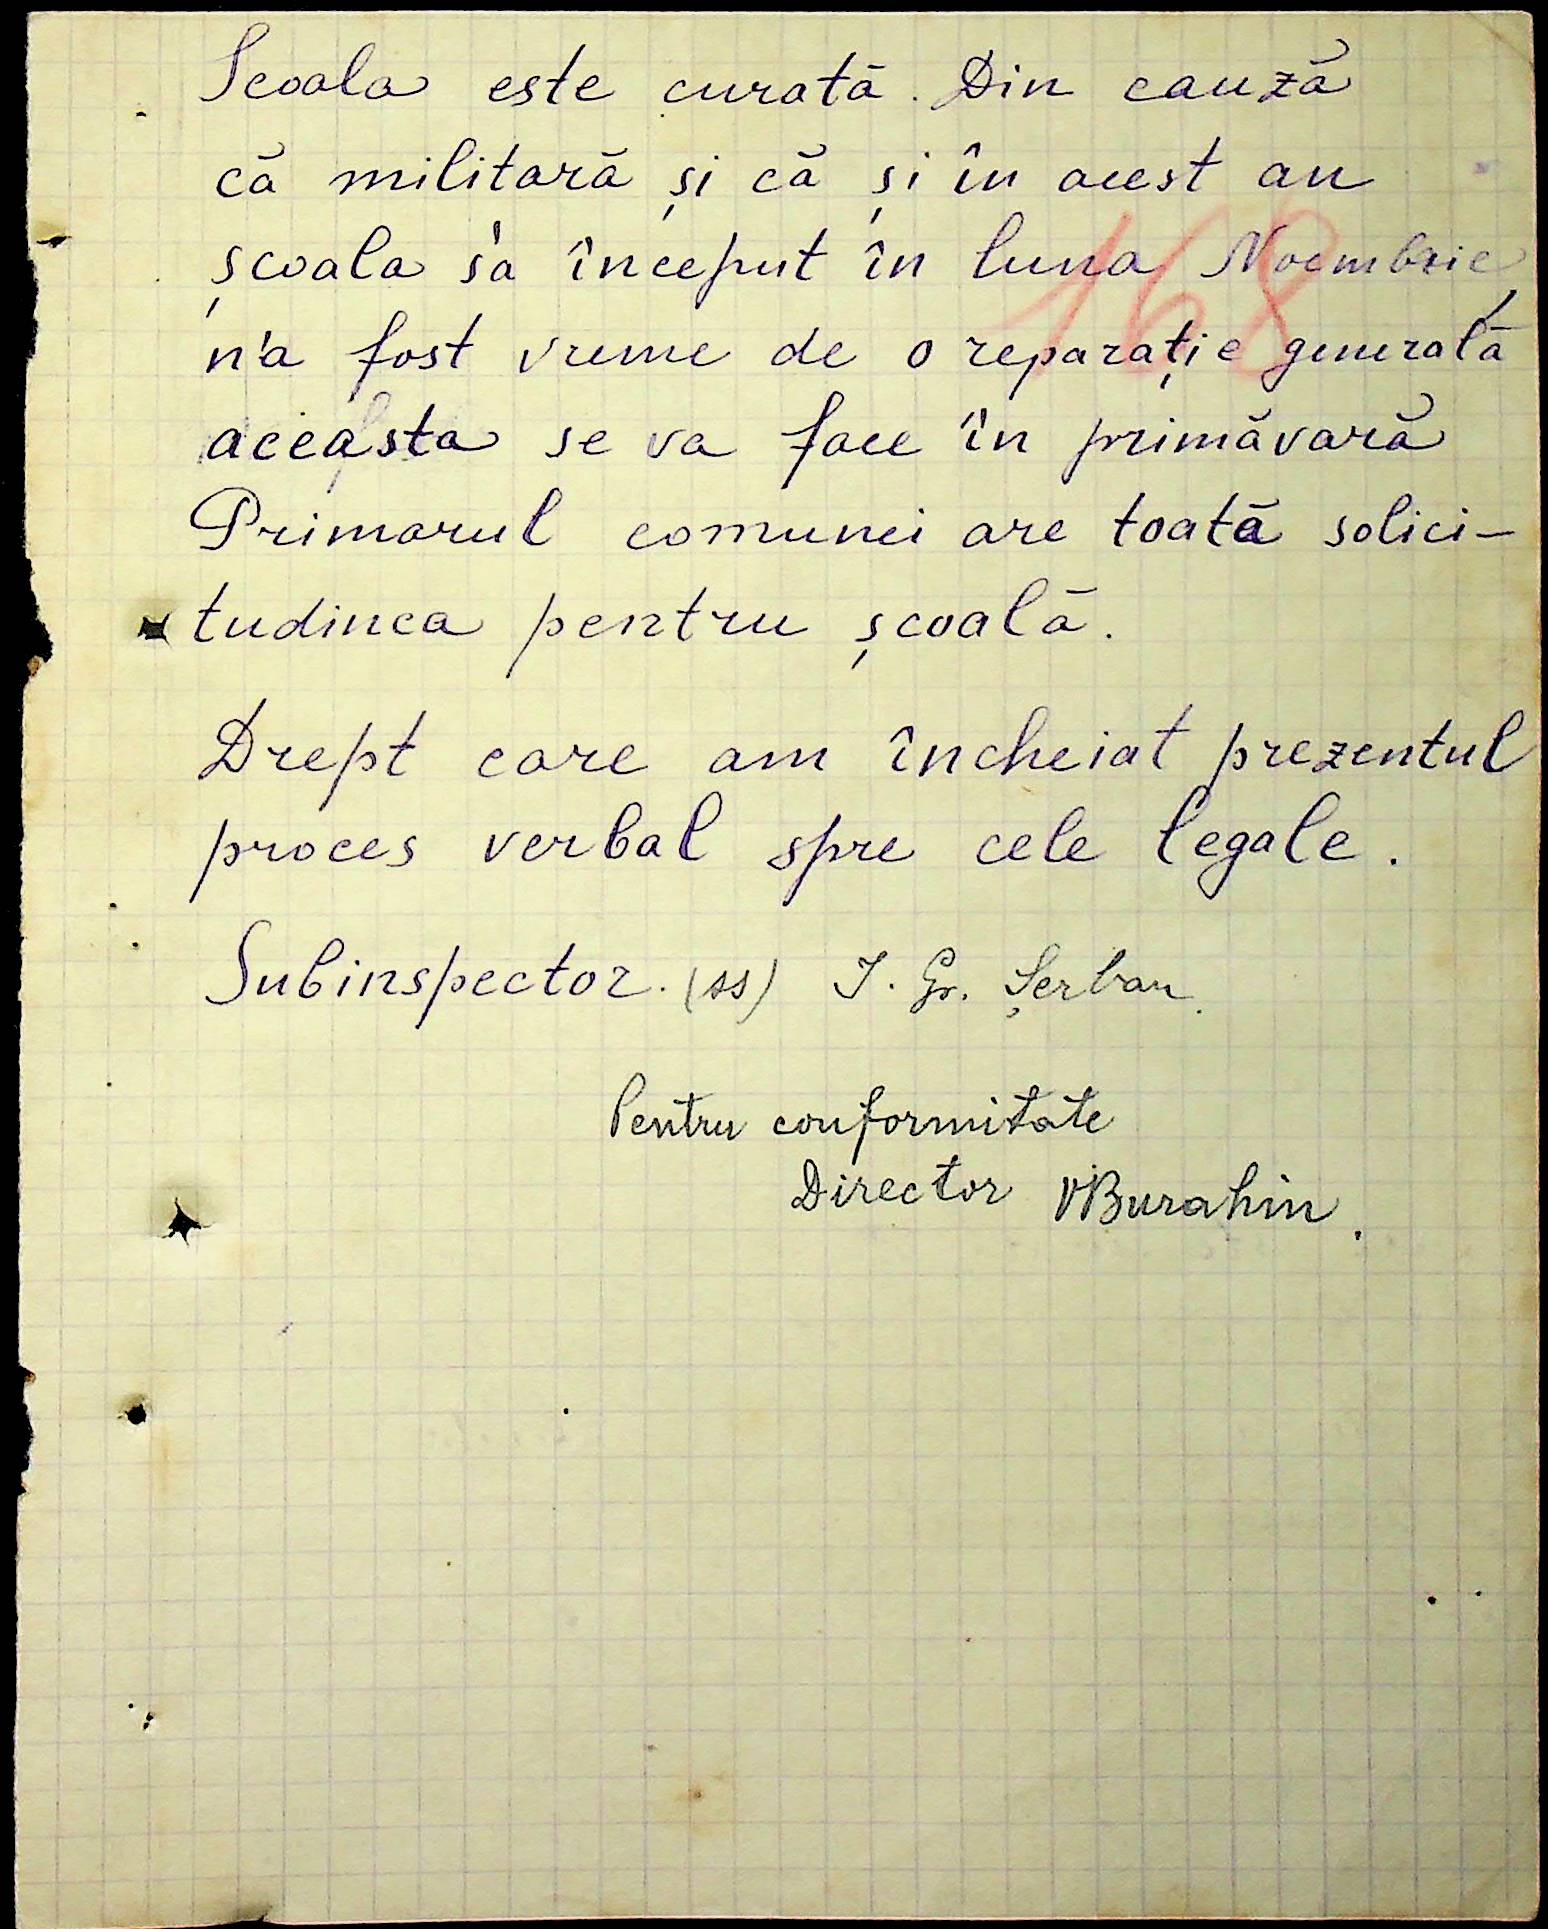 Scoala este curată. Din cauză
că militară și că și în acest an
școala s'a început în luna Noembrie,
n'a fost vreme de o reparație generală
aceasta se va face în primăvară
Primarul comunei are toată solici-
tudinea pentru școală.
Drept care am încheiat prezentul
proces verbal spre cele legale.
Subinspector. (ss) I. Gr. Șerban.
Pentru conformitate
Director VBurahin.
168